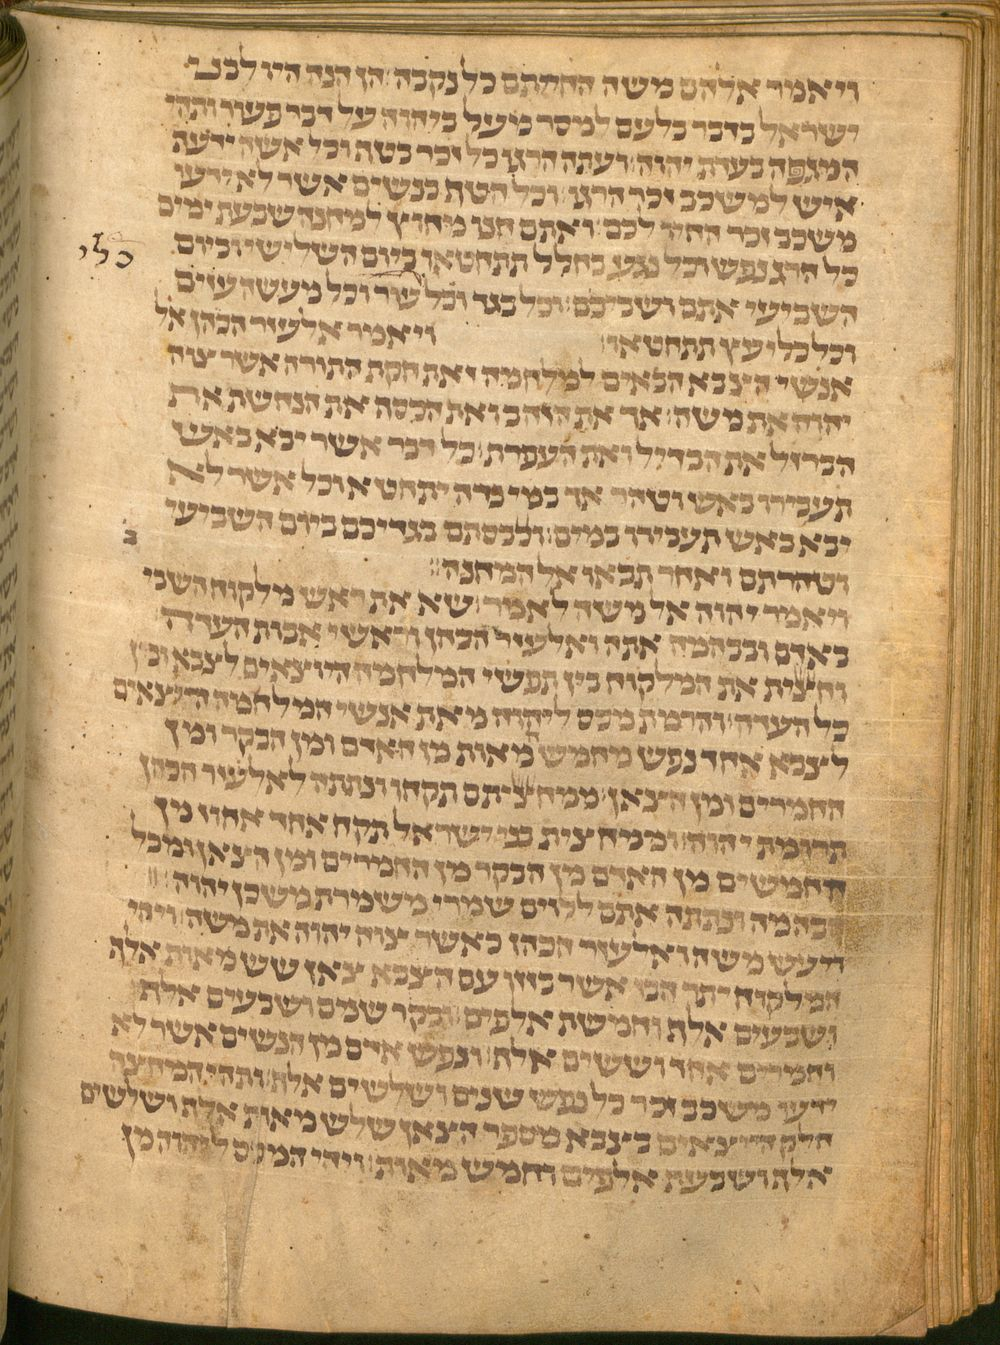 ויאמר אלהם משה החייתם כל נקבה הן הנה היו לבני
ישראל בדבר בלעם למסר מעל ביהוה על דבר פעור ותהי
המגפה בעדת יהוה ועתה הרגו כל זכר בטף וכל אשה ידעת
איש למשכב זכר הרגו וכל הטף בנשים אשר לא ידעו
משכב זכר החיו לכם ואתם חנו מחוץ למחנה שבעת ימים
כל הרג נפש וכל נגע בחלל תתחטאו ביום השלישי וביום
כלי
השביעי אתם ושביכם וכל בגד וכל עור וכל מעשה עזים
וכל כלי עץ תתחטאו ויאמר אלעזר הכהן אל
אנשי הצבא הבאים למלחמה זאת חקת התורה אשר צוה
יהוה את משה אך את הזהב ואת הכסף את הנחשת את
הברזל את הבדיל ואת העפרת כל דבר אשר יבא באש
תעבירו באש וטהר אך במי נדה יתחטא וכל אשר לא
יבא באש תעבירו במים וכבסתם בגדיכם ביום השביעי
וטהרתם ואחר תבאו אל המחנה
ויאמר יהוה אל משה לאמר שא את ראש מלקוח השבי
באדם ובבהמה אתה ואלעזר הכהן וראשי אבות העדה
וחצית את המלקוח בין תפשי המלחמה היוצאים לצבא ובין
כל העדה והרמת מכס ליהוה מאת אנשי המלחמה היוצאים
לצבא אחד נפש מחמש מאות מן האדם ומן הבקר ומן
החמרים ומן הצאן ממחציתם תקחו ונתתה לאלעזר הכהן
תרומת יהוה וממחצית בני ישראל תקח אחד אחוז מן
החמשים מן האדם מן הבקר מן החמרים ומן הצאן ומכל
הבהמה ונתתה אתם ללוים שמרי משמרת משכן יהוה
ויעש משה ואלעזר הכהן כאשר צוה יהוה את משה ויהי
המלקוח יתר הבז אשר בזזו עם הצבא צאן שש מאות אלף
ושבעים אלף וחמשת אלפים ובקר שנים ושבעים אלף
וחמרים אחד וששים אלף ונפש אדם מן הנשים אשר לא
ידעו משכב זכר כל נפש שנים ושלשים אלף ותהי המחצה
חלק היוצאים בצבא מספר הצאן שלש מאות אלף ושלשים
אלף ושבעת אלפים וחמש מאות ויהי המכס ליהוה מן